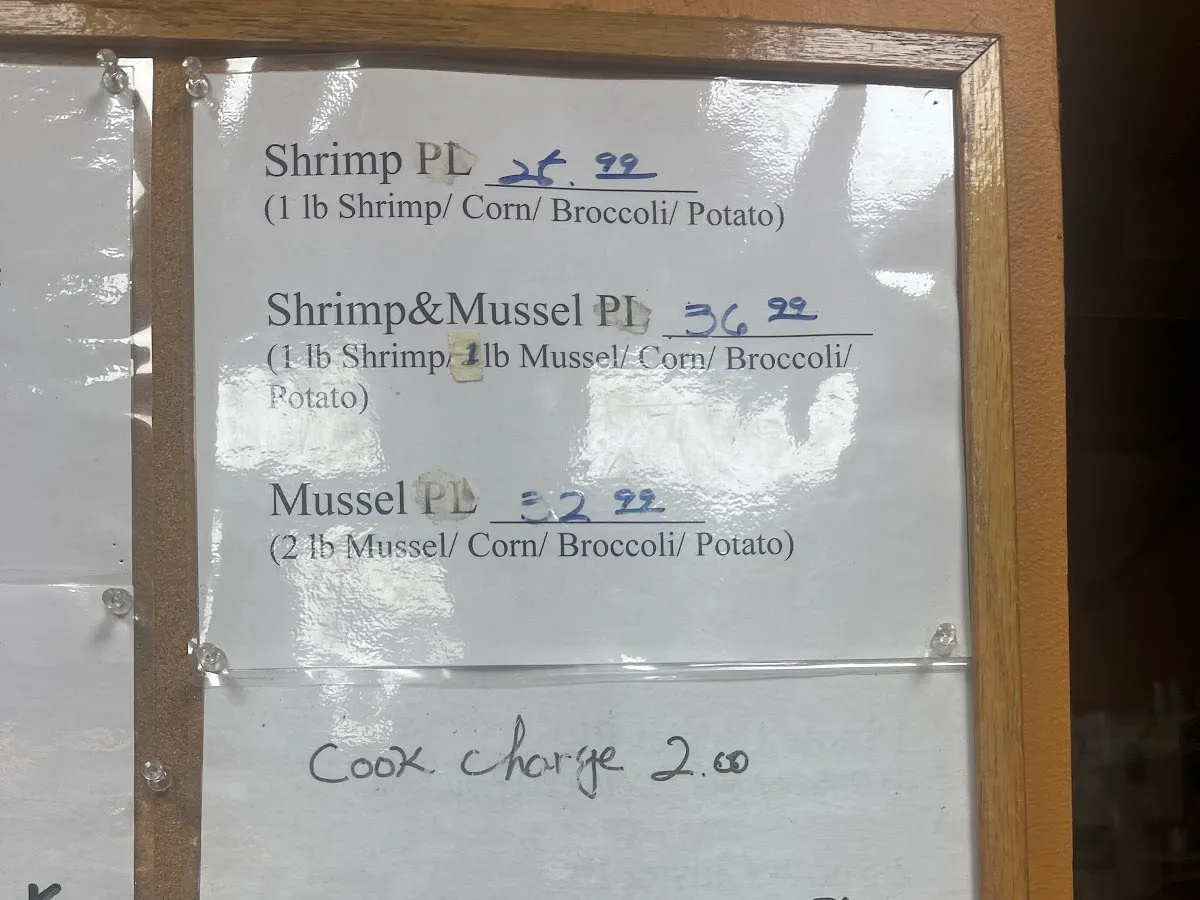 Shrimp PL 25.99
(1 lb Shrimp/ Corn/ Broccoli/ Potato)
Shrimp&Mussel PL 36 99
(1 lb Shrimp/ 1 lb Mussel/ Corn/ Broccoli/
Potato)
Mussel PL 32 99
(2 lb Mussel/ Corn/ Broccoli/ Potato)
Cook charge 2.00